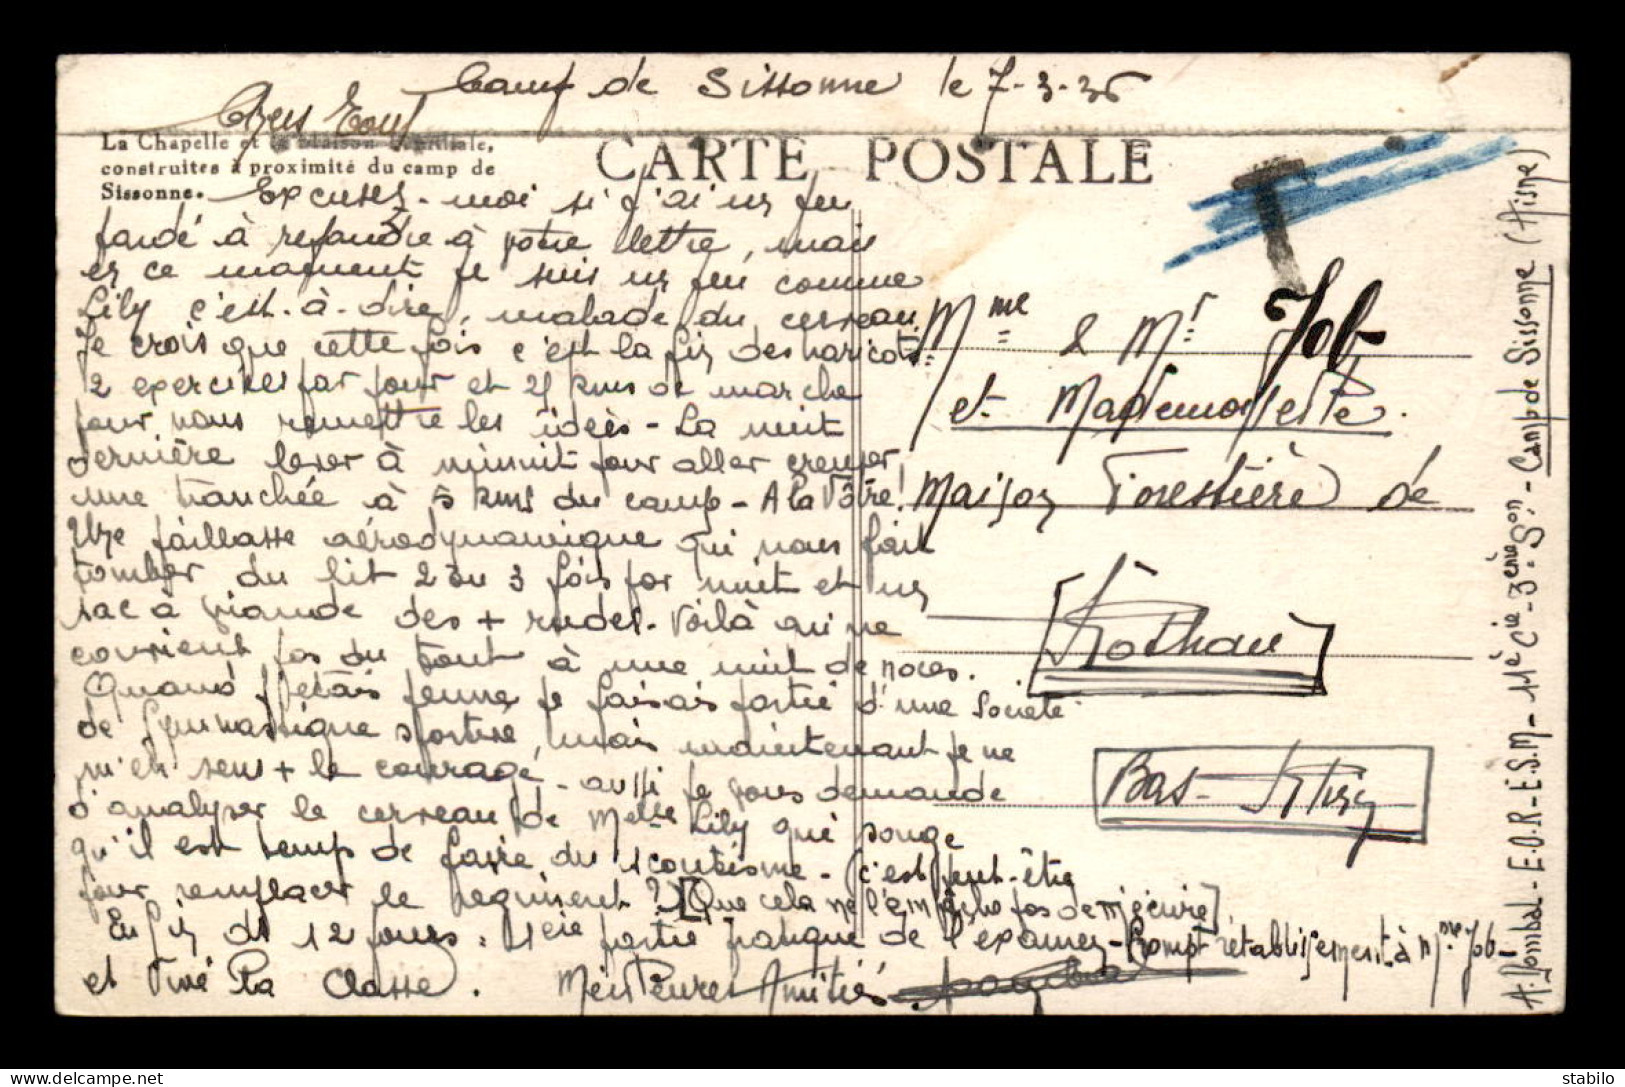 Camp de Sissonne le 7-3-36
Chers Tous
La Chapelle et la Maison Familiale,
construites à proximité du camp de
Sissonne.
CARTE POSTALE
T
Excusez-moi si j'ai un peu
tardé à répondre à votre lettre, mais
en ce moment je suis un peu comme
Lily c'est-à-dire, malade du cerveau.
Je crois que cette fois c'est la fin des haricots
2 exercices par jour et 25 kms de marche
pour nous remettre les idées - La nuit
dernière lever à minuit pour aller creuser
une tranchée à 5 kms du camp - A la Vôtre!
Une paillasse aérodynamique qui nous fait
tomber du lit 2 ou 3 fois par nuit et un
sac à viande des + rudes. Voilà qui ne
convient pas du tout à une nuit de noces.
Quand j'étais jeune je faisais partie d'une Société
de Gymnastique sportive, mais maintenant je ne
m'en sens + le courage - aussi je vous demande
d'analyser le cerveau de Melle Lily qui songe
qu'il est temps de faire du scoutisme - (c'est peut-être
pour remplacer le régiment ?) [Que cela ne l'empêche pas de m'écrire].
En fin de 12 jours : 1ère partie pratique de l'examen - Prompt rétablissement à Mme Job -
et Vive La Classe. Meilleures Amitiés
Mme & Mr Job
et Mademoiselle.
Maison Forestière de
Rothau
Bas-Rhin
A. Dombal - E.O.R - E.S.M - 11è Cie - 3ème Son - S.P. - Camp de Sissonne (Aisne)
stabilo